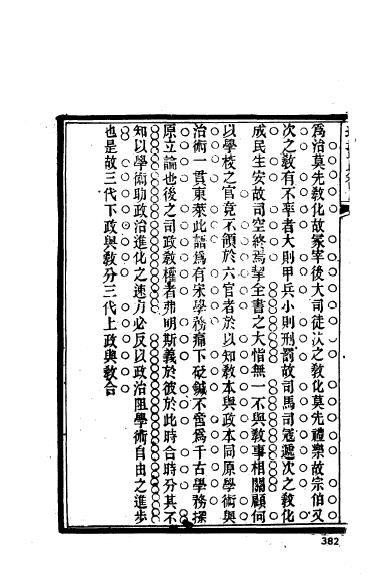 爲治莫先敎化故冢宰後大司徒次之敎化莫先禮樂故宗伯又
次之敎有不率者大則甲兵小則刑罰故司馬司寇遞次之敎化
成民生安故司空終焉挈全書之大恉無一不與敎事相關顧何
以學校之官竟不領於六官者於以知敎本與政本同原學術與
治術一貫東萊此語爲有宋學務痛下砭鍼不啻爲千古學務探
原立論也後之司政敎權者弗明斯義於彼於此時合時分其不
知以學術助政治進化之速力必反以政治阻學術自由之進步
也是故三代下政與敎分三代上政與敎合
382